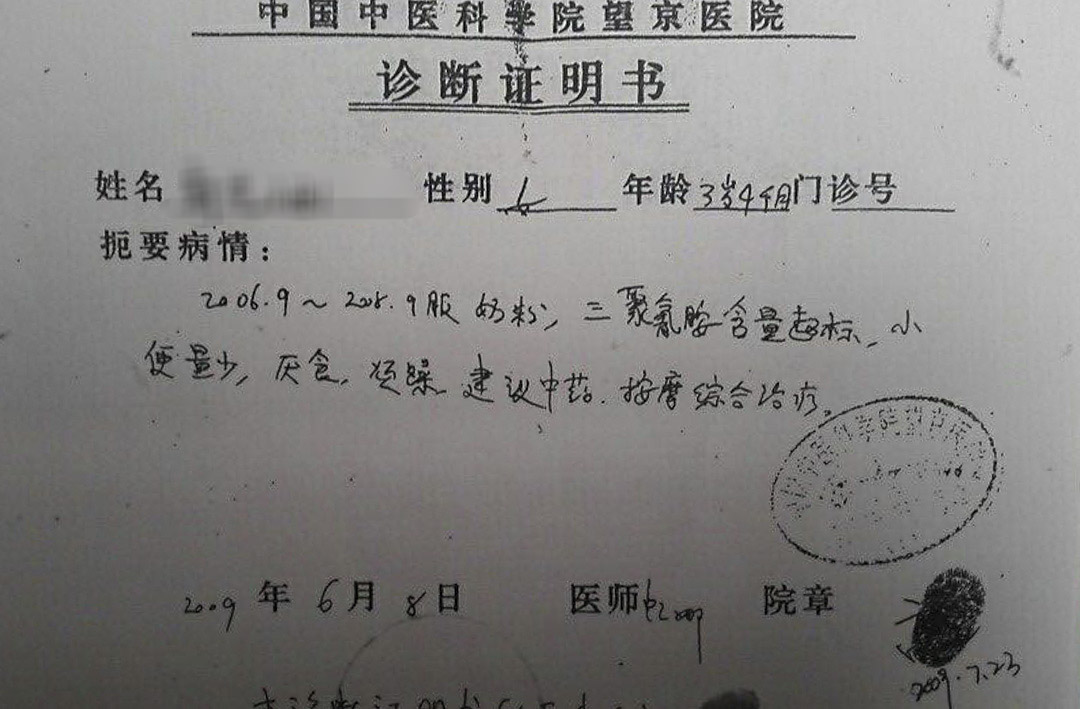 中国中医科学院望京医院
诊断证明书
姓名 性别 女 年龄 3岁4个月 门诊号
扼要病情：
2006.9～2008.9服奶粉，三聚氰胺含量超标，小
便量少，厌食，烦躁 建议中药．按摩综合治疗。
中国中医科学院望京医院
2009 年 6 月 8 日 医师 院章
2009.7.23